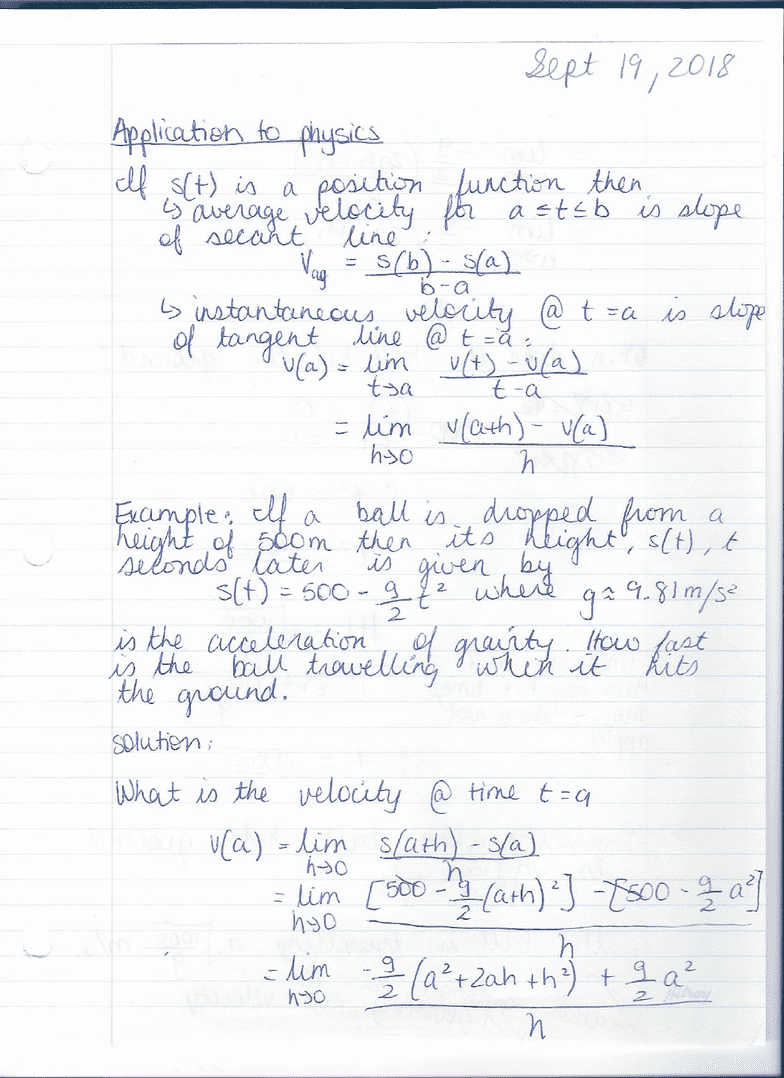 Sept 19, 2018
Application to physics
If s(t) is a position function then
↳ average velocity for a ≤ t ≤ b is slope
of secant line:
Vavg = s(b) - s(a) / b-a
↳ instantaneous velocity @ t=a is slope
of tangent line @ t=a:
v(a) = lim t→a v(t) - v(a) / t-a
= lim h→0 v(a+h) - v(a) / h
Example: If a ball is dropped from a
height of 500m then its height, s(t), t
seconds later is given by
s(t) = 500 - g/2 t² where g ≈ 9.81 m/s²
is the acceleration of gravity. How fast
is the ball travelling when it hits
the ground.
solution:
What is the velocity @ time t=a
v(a) = lim h→0 s(a+h) - s(a) / h
= lim h→0 [500 - g/2 (a+h)²] - [500 - g/2 a²] / h
= lim h→0 -g/2 (a² + 2ah + h²) + g/2 a² / h